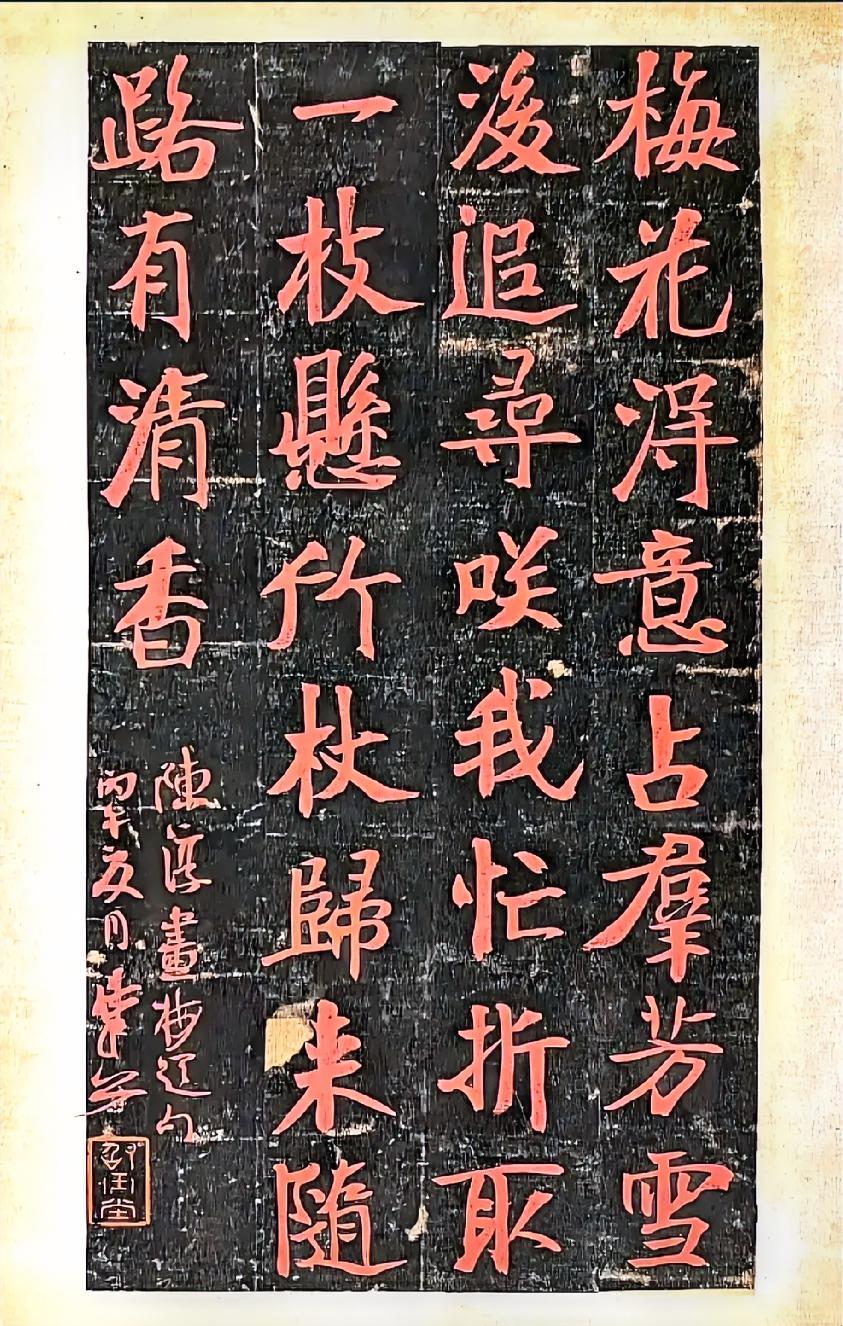 梅花得意占羣芳雪
後追尋咲我忙折取
一枝懸竹杖歸来隨
路有清香
陳淳畫梅題句
丙午夏月